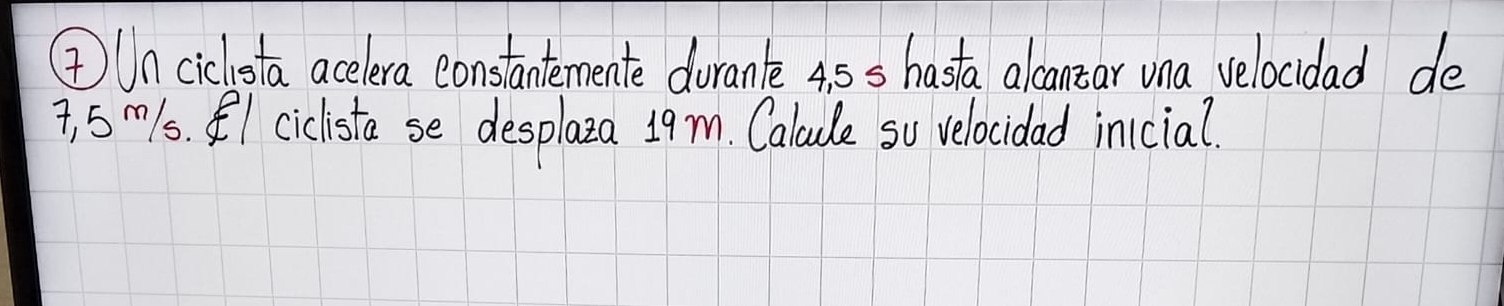 7 Un ciclista acelera constantemente durante 4,5 s hasta alcanzar una velocidad de
7,5 m/s. El ciclista se desplaza 19 m. Calcule su velocidad inicial.